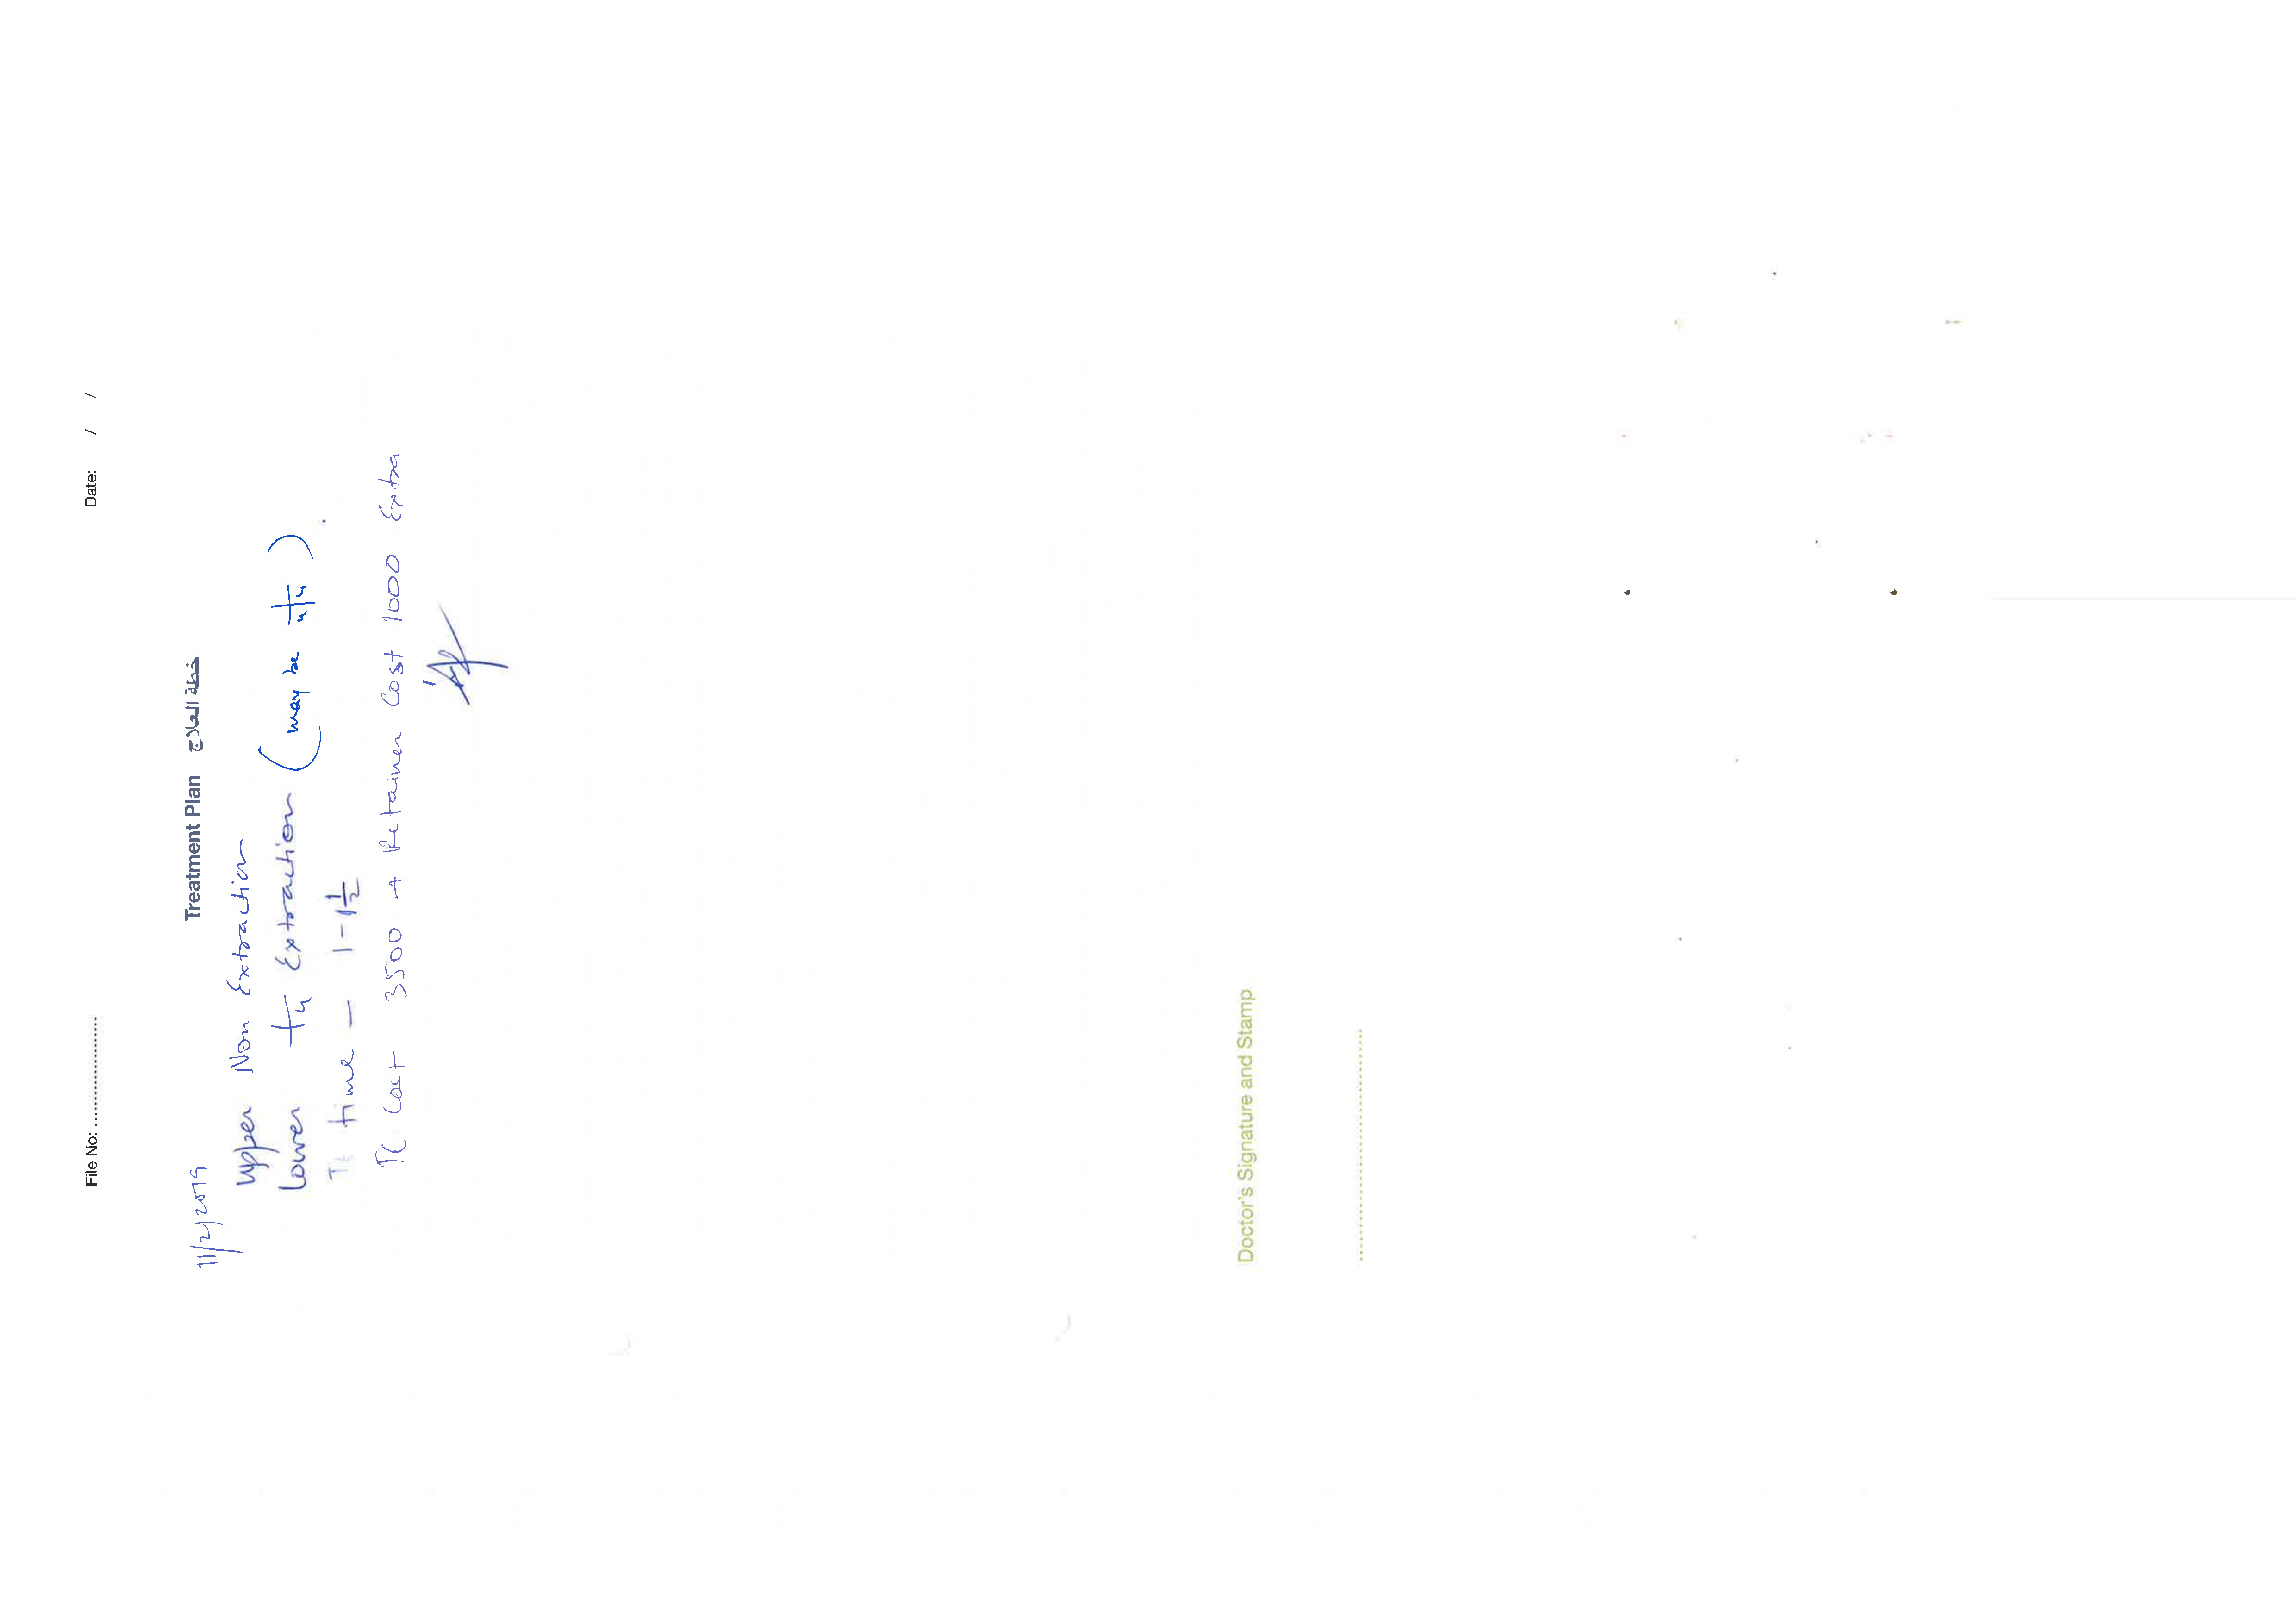 File No: ........................ Date: / /
Treatment Plan خطة العلاج
11/2/2019
Upper Non Extraction
Lower 4 Extraction (may be 4/4).
Tt time - 1-1½
Tt Cost 3500 + Retainer Cost 1000 Extra
Doctor's Signature and Stamp
........................................